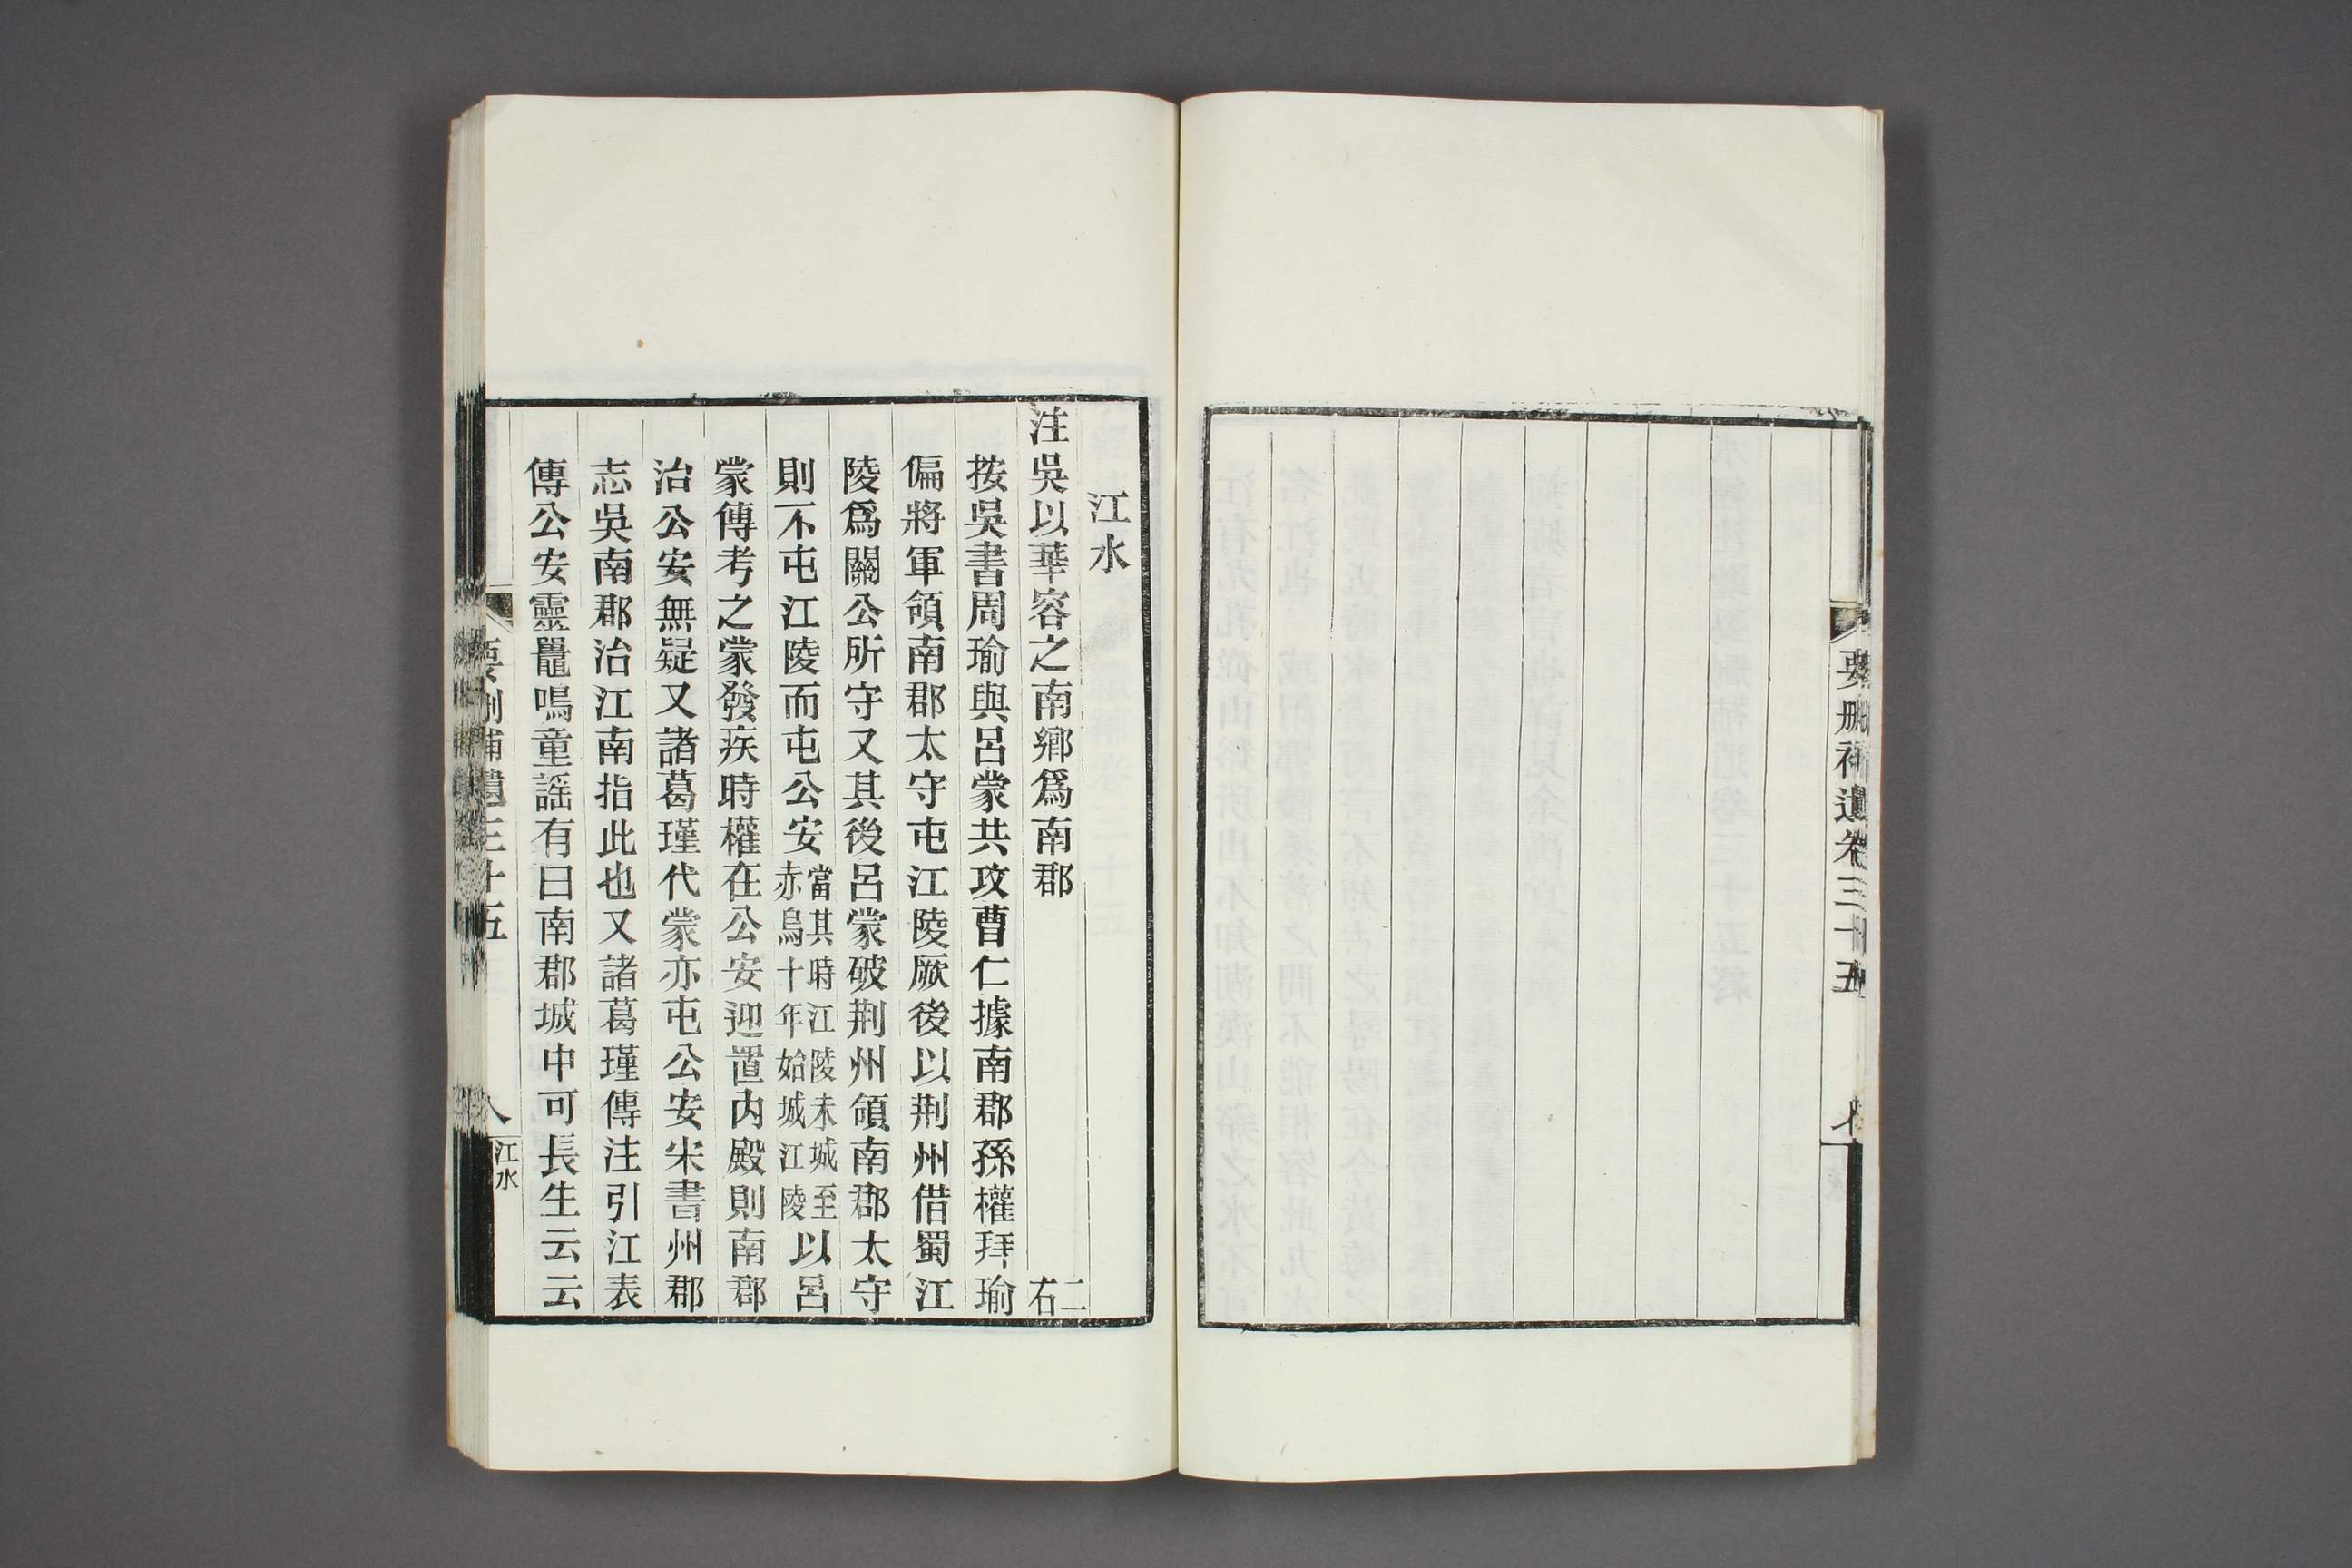 要刪補遺卷三十五
江水
注吳以華容之南鄉爲南郡 二右
按吳書周瑜與呂蒙共攻曹仁據南郡孫權拜瑜
偏將軍領南郡太守屯江陵厥後以荆州借蜀江
陵爲關公所守又其後呂蒙破荆州領南郡太守
則不屯江陵而屯公安當其時江陵未城至赤烏十年始城江陵以呂
蒙傳考之蒙發疾時權在公安迎置内殿則南郡
治公安無疑又諸葛瑾代蒙亦屯公安宋書州郡
志吳南郡治江南指此也又諸葛瑾傳注引江表
傳公安靈鼉鳴童謡有曰南郡城中可長生云云
要刪補遺三十五 八 江水